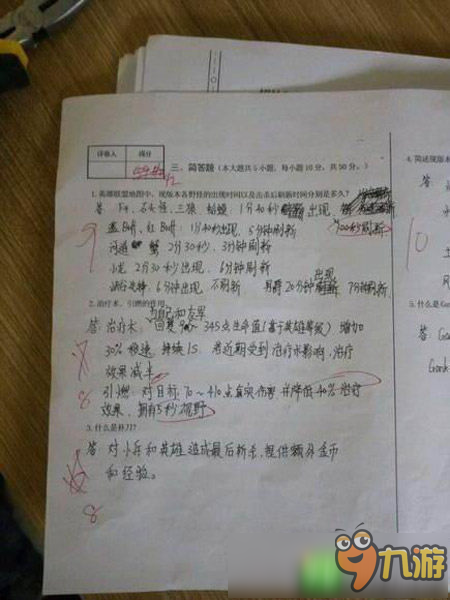 评卷人 得分
三、简答题（本大题共5小题，每小题10分，共50分。）
1.英雄联盟地图中，现版本各野怪的出现时间以及击杀后刷新时间分别是多久？
答：F4、石头怪、三狼、蛤蟆：1分40秒 出现，
100秒刷新
蓝Buff、红Buff：1分40秒出现，5分钟刷新
河道 蟹 2分30秒，3分钟刷新
小龙 2分30秒出现，6分钟刷新
峡谷先锋 6分钟出现 不刷新 男爵20分钟出现 7分钟刷新
9
2.治疗术、引燃的作用
答：治疗术：为自己和友军回复90～345点生命值(基于英雄等级) 增加
30%移速 持续1S。若近期受到治疗术影响，治疗
效果减半
引燃：对目标70～410点真实伤害 并降低40%治疗
效果，拥有5秒视野
8
3.什么是补刀？
答：对小兵和英雄造成最后斩杀，提供额外金币
和经验。
8
4.简述现版本
答
10
5.什么是G
答：G
Gank
九游